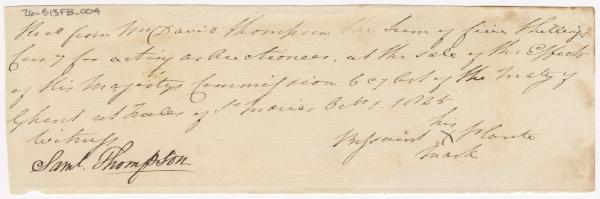 76-B13FB-004
Recd from Mr David Thompson the Sum of five Shillings
Curry for acting as Auctioneer, at the sale of the Effects
of His Majestys Commission 6 & 7 Art of the Treaty of
Ghent at Sales of St Maries Octr 1. 1825
Witness
his
X Plante
mark
Saml. Thompson